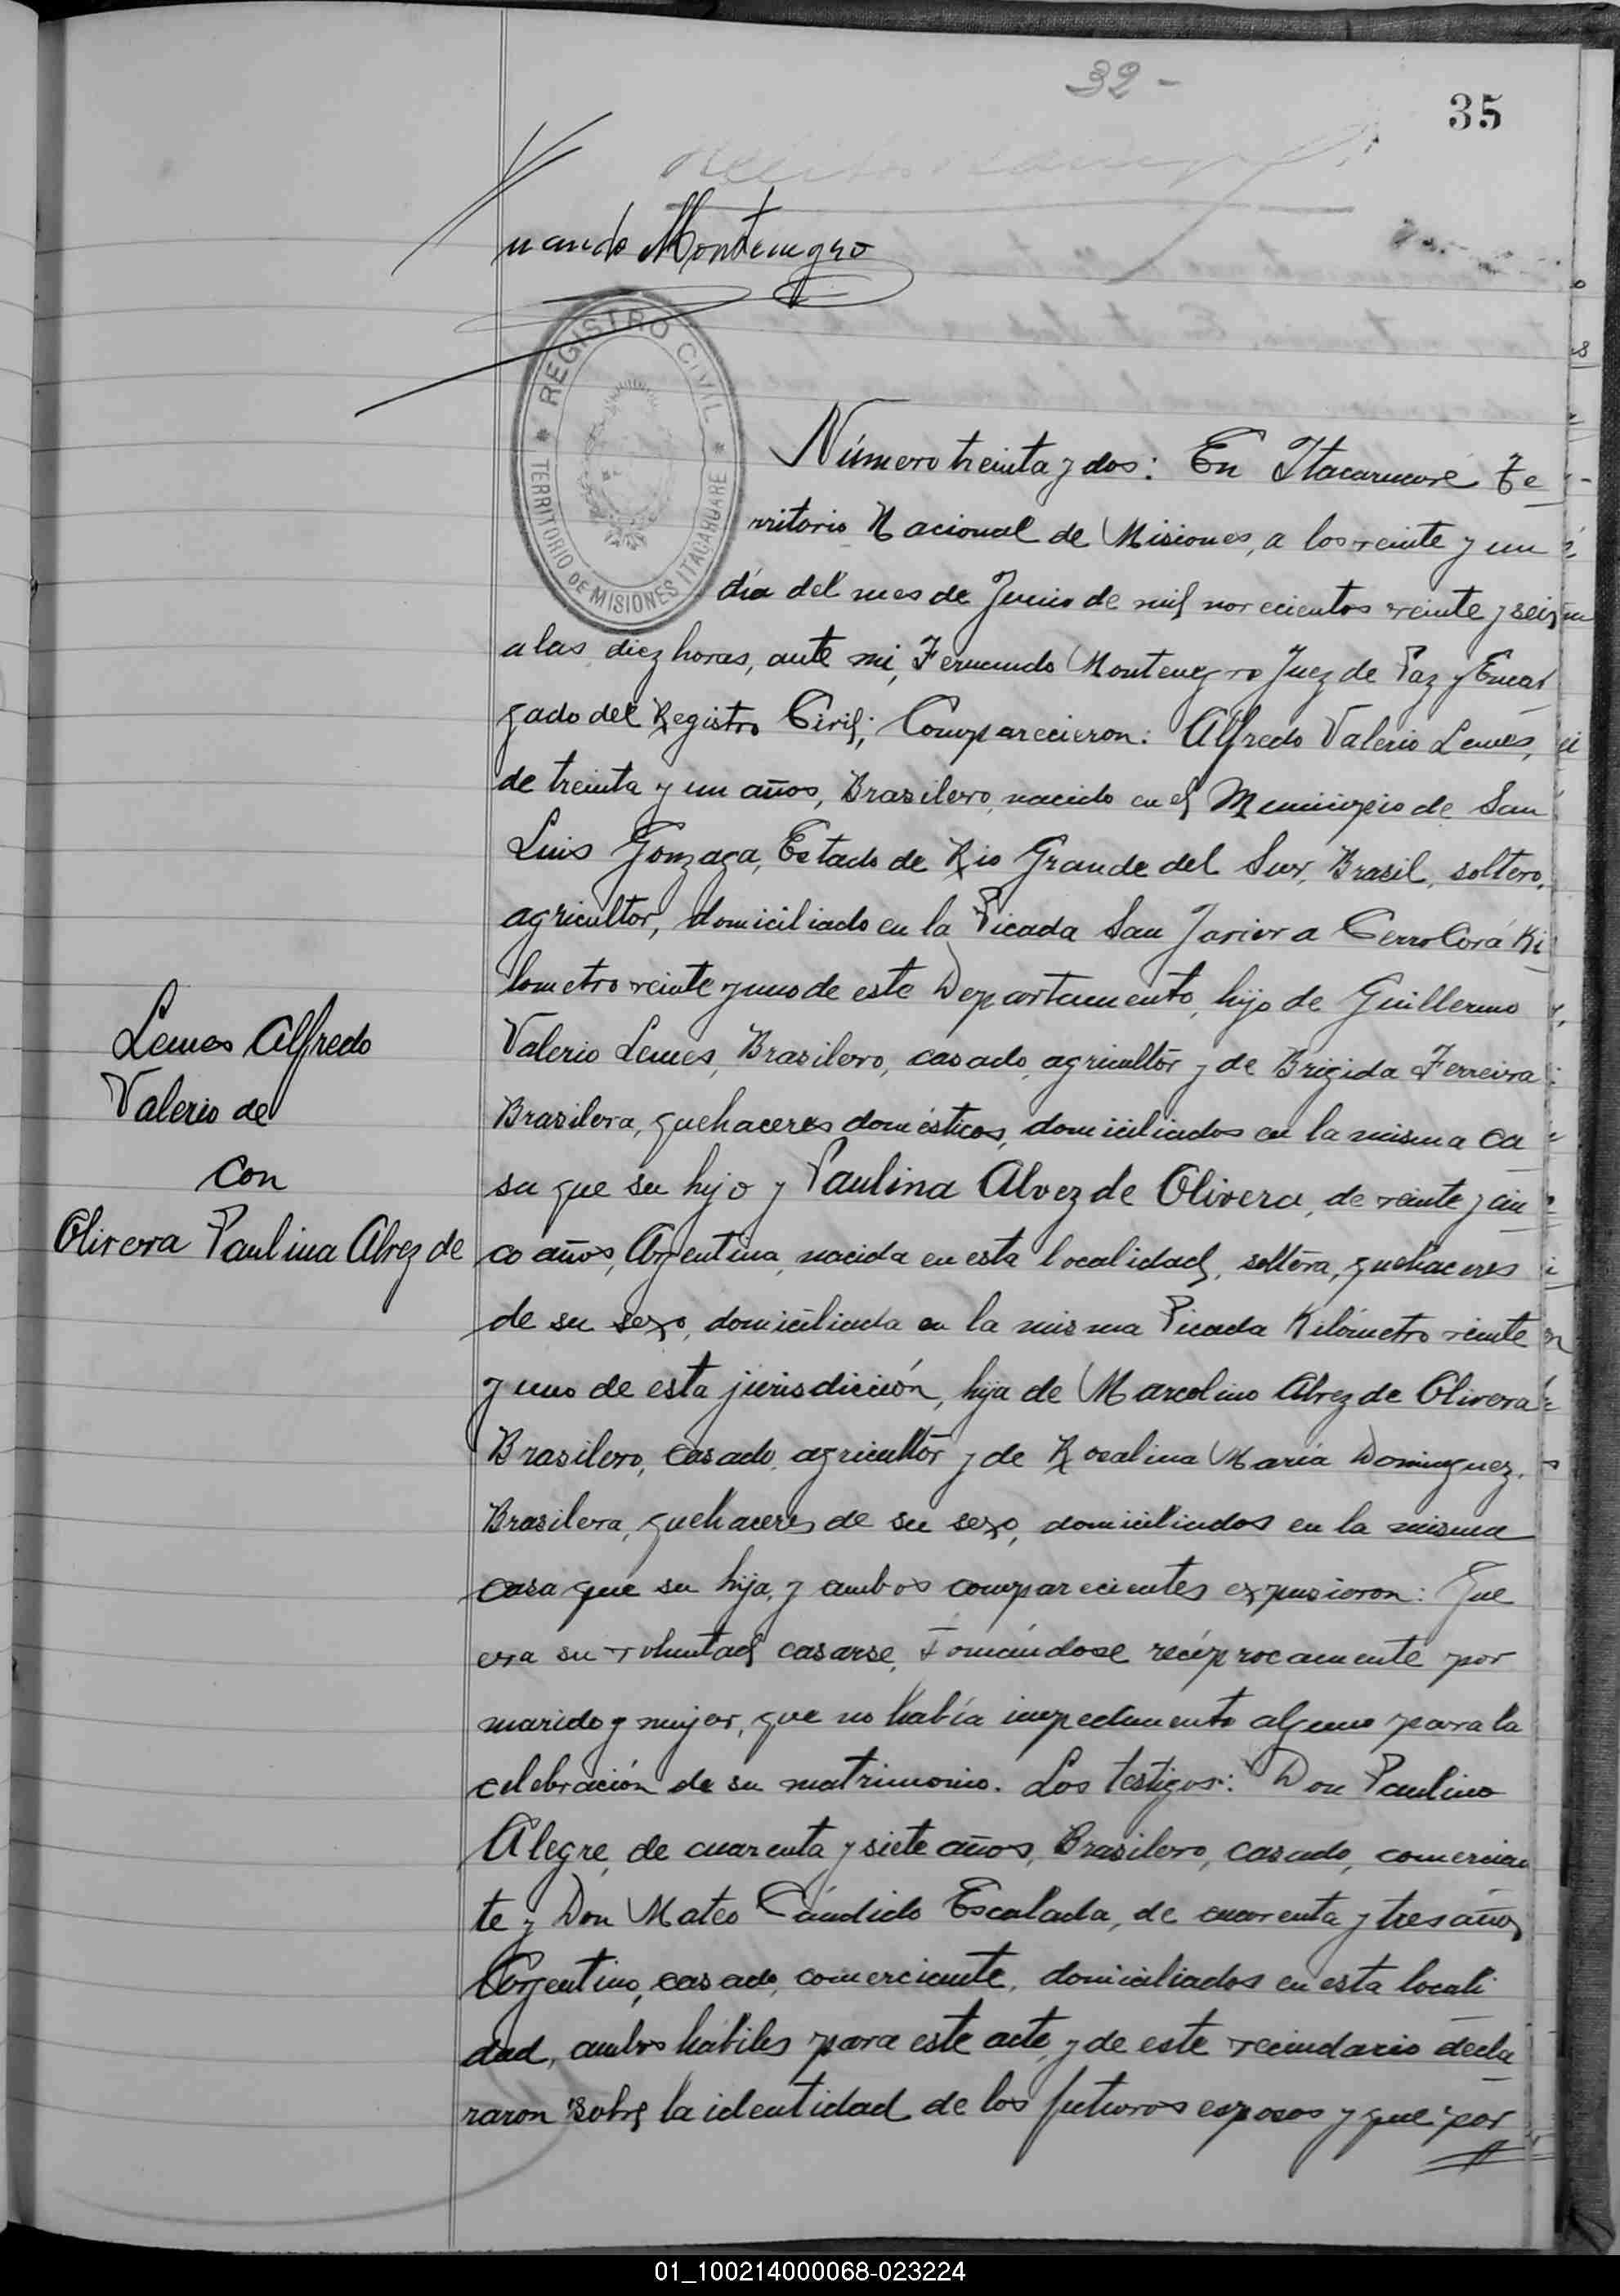 32-
35
Montenegro
REGISTRO CIVIL
TERRITORIO DE MISIONES ITACARUARE
Número treinta y dos: En Itacaruaré Te
rritorio Nacional de Misiones, a los veinte y un
día del mes de Junio de mil novecientos veinte y seis
a las diez horas, ante mi, Fernando Montenegro Juez de Paz y Encar
gado del Registro Civil; Comparecieron: Alfredo Valerio Lemes,
de treinta y un años, Brasilero, nacido en el Municipio de San
Luis Gonzaga, Estado de Rio Grande del Sur, Brasil, soltero,
agricultor, domiciliado en la Picada San Javier a Cerro Corá Ki
lometro veinte y uno de este Departamento, hijo de Guillermo
Valerio Lemes, Brasilero, casado, agricultor y de Brigida Ferreira
Brasilera, quehaceres domésticos, domiciliados en la misma ca
sa que su hijo y Paulina Alvez de Olivera, de veinte y cin
co años, Argentina, nacida en esta localidad, soltera, quehaceres
de su sexo, domiciliada en la misma Picada Kilómetro veinte
y uno de esta jurisdicción, hija de Marcolino Alvez de Olivera
Brasilero, casado, agricultor y de Rosalina María Dominguez,
Brasilera, quehaceres de su sexo, domiciliados en la misma
casa que su hija, y ambos comparecientes expusieron: Que
era su voluntad casarse, tomándose recíprocamente por
marido y mujer, que no había impedimento alguno para la
celebración de su matrimonio. Los testigos: Don Paulino
Alegre, de cuarenta y siete años, Brasilero, casado, comercian
te y Don Mateo Cándido Escalada, de cuarenta y tres años
Argentino, casado, comerciante, domiciliados en esta locali
dad, ambos hábiles para este acto, y de este vecindario decla
raron sobre la identidad de los futuros esposos y que por
Lemes Alfredo
Valerio de
con
Olivera Paulina Alvez de
01_100214000068-023224